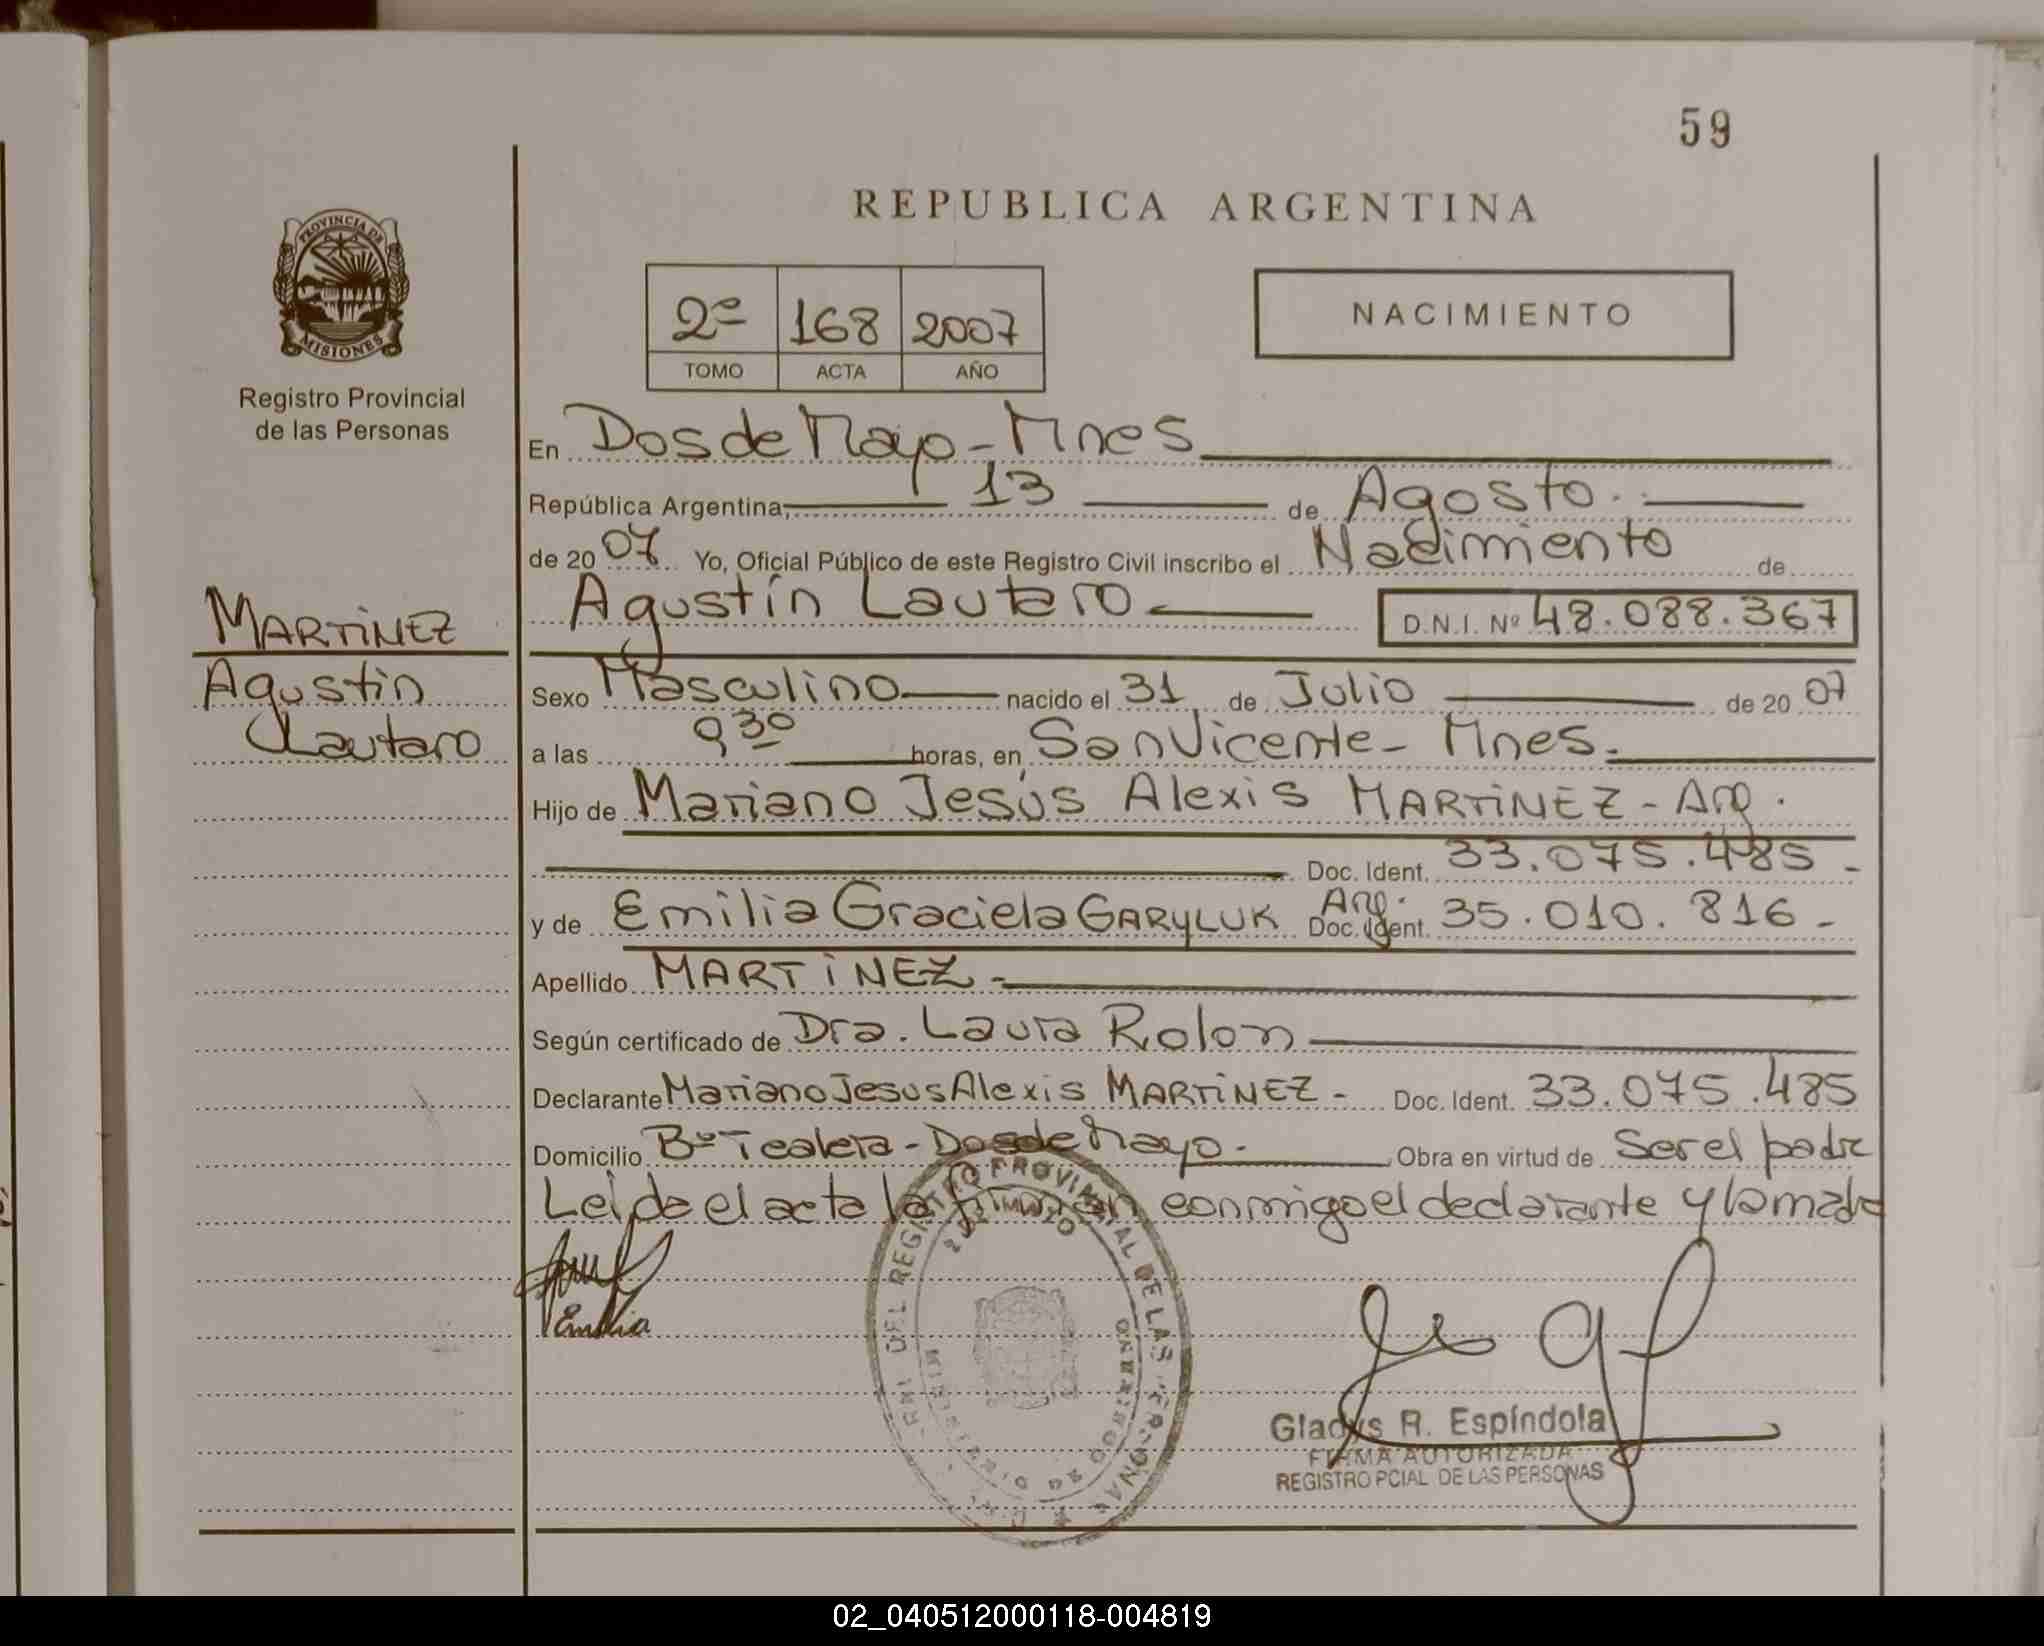 59
REPUBLICA ARGENTINA
PROVINCIA DE
MISIONES
Registro Provincial
de las Personas
2º 168 2007
TOMO ACTA AÑO
NACIMIENTO
En Dos de Mayo - Mnes
República Argentina, 13 de Agosto.
de 20 07 Yo, Oficial Público de este Registro Civil inscribo el Nacimiento de
MARTiNEZ
Agustin
Lautaro
Agustín Lautaro D.N.I. Nº 48.088.367
Sexo Masculino nacido el 31 de Julio de 20 07
a las 9 30 horas, en San Vicente - Mnes.
Hijo de Mariano Jesús Alexis MARTiNEZ - Arg.
Doc. Ident. 33.075.485 -
y de Emilia Graciela GARYLUK Arg. Doc. Ident. 35.010.816 -
Apellido MARTiNEZ -
Según certificado de Dra. Laura Rolon
Declarante Mariano Jesus Alexis MARTiNEZ - Doc. Ident. 33.075.485
Domicilio Bº Tealera - Dos de Mayo. Obra en virtud de Ser el padre
Leída el acta la firman conmigo el declarante y la madre
Emilia
DEL REGISTRO PROVINCIAL DE LAS PERSONAS
MINISTERIO DE GOBIERNO
Gladys R. Espíndola
FIRMA AUTORIZADA
REGISTRO PCIAL DE LAS PERSONAS
02_040512000118-004819